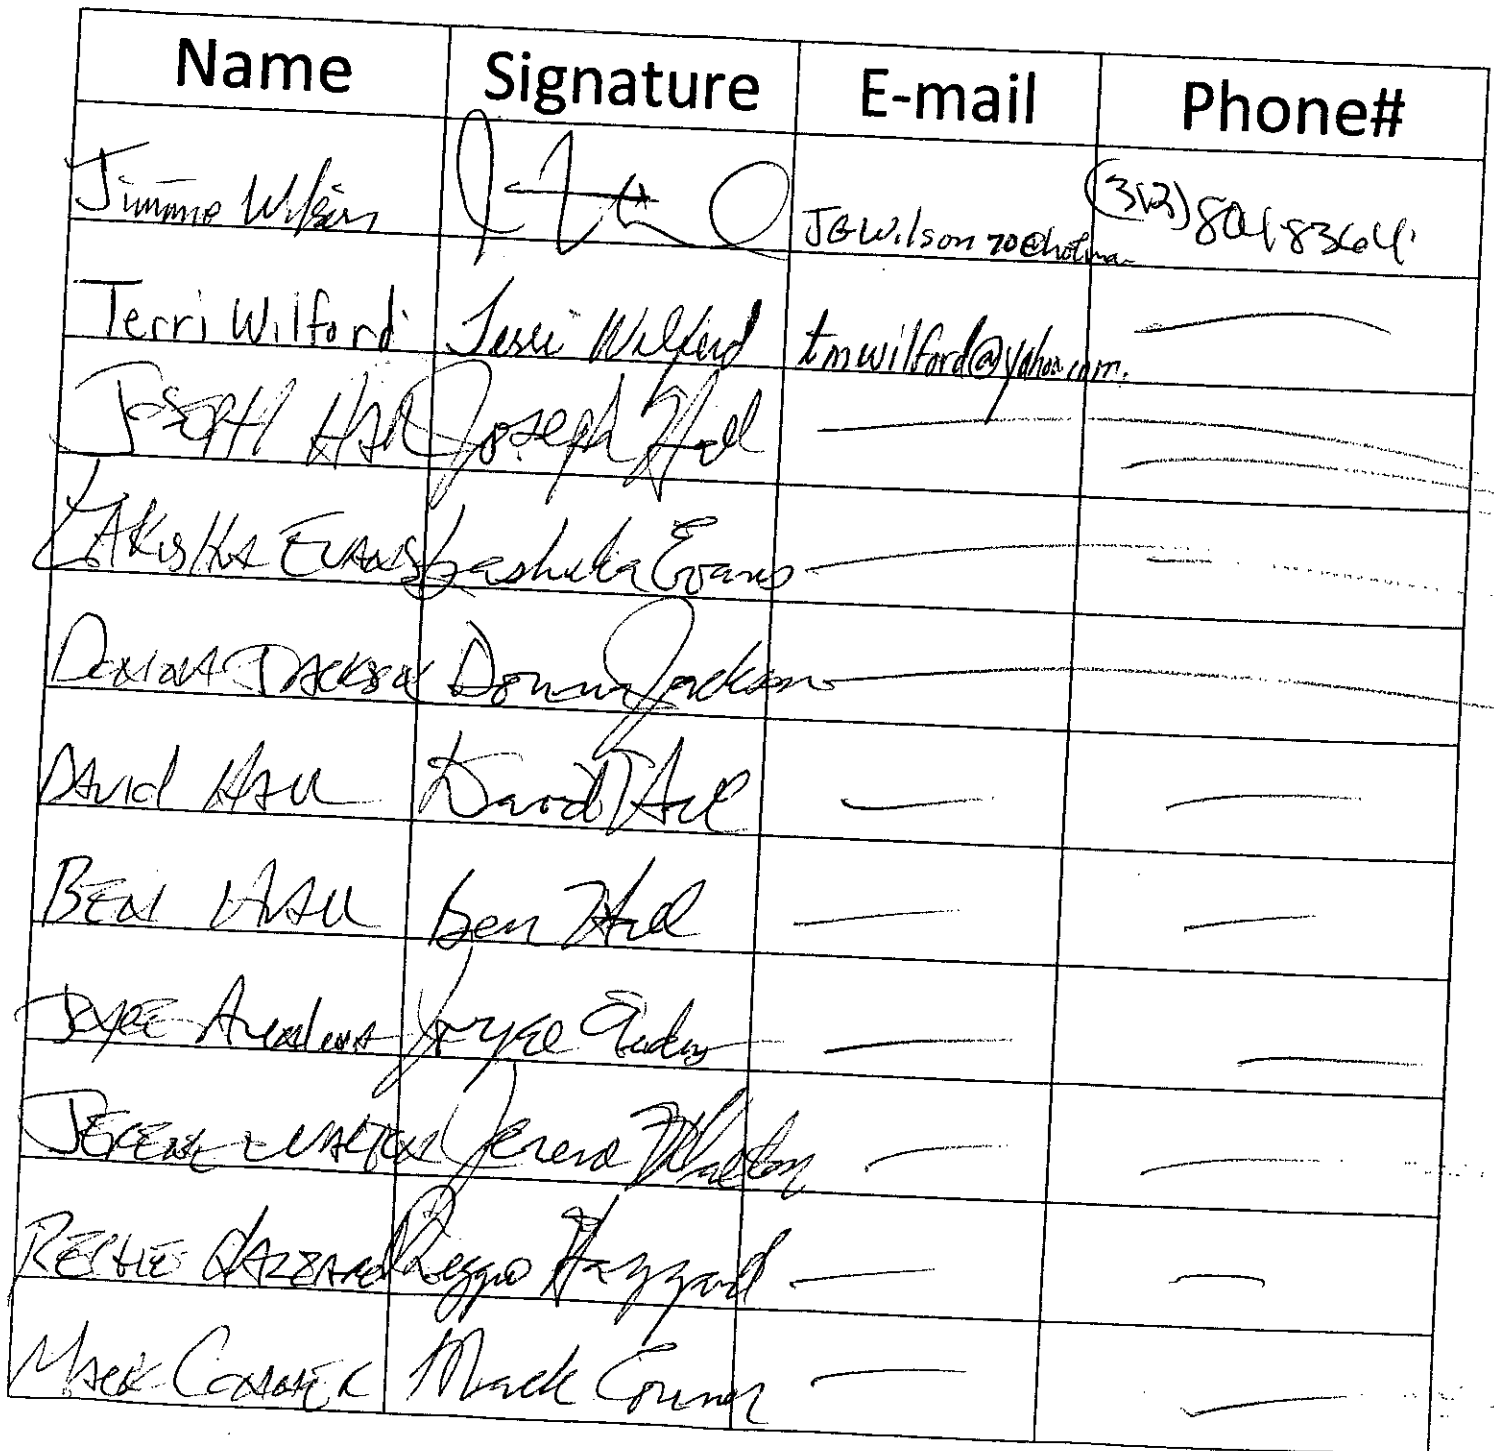 Name Signature E-mail Phone#
Jimmie Wilson JGWilson70@hotma (312) 804-8364
Terri Wilford Terri Wilford tmwilford@yahoo.com
JOSEPH HALL Joseph Hall — —
LAKISHA EVANS Lashuka Evans — —
DONNA JACKSON Donna Jackson —
DAVID HALL David Hall — —
BEN HALL Ben Hall — —
JOYCE Joyce — —
JERENE WALTON Jerene Walton — —
REGGIE HAZZARD Reggie Hazzard — —
MACK CONNER Mack Conner — —